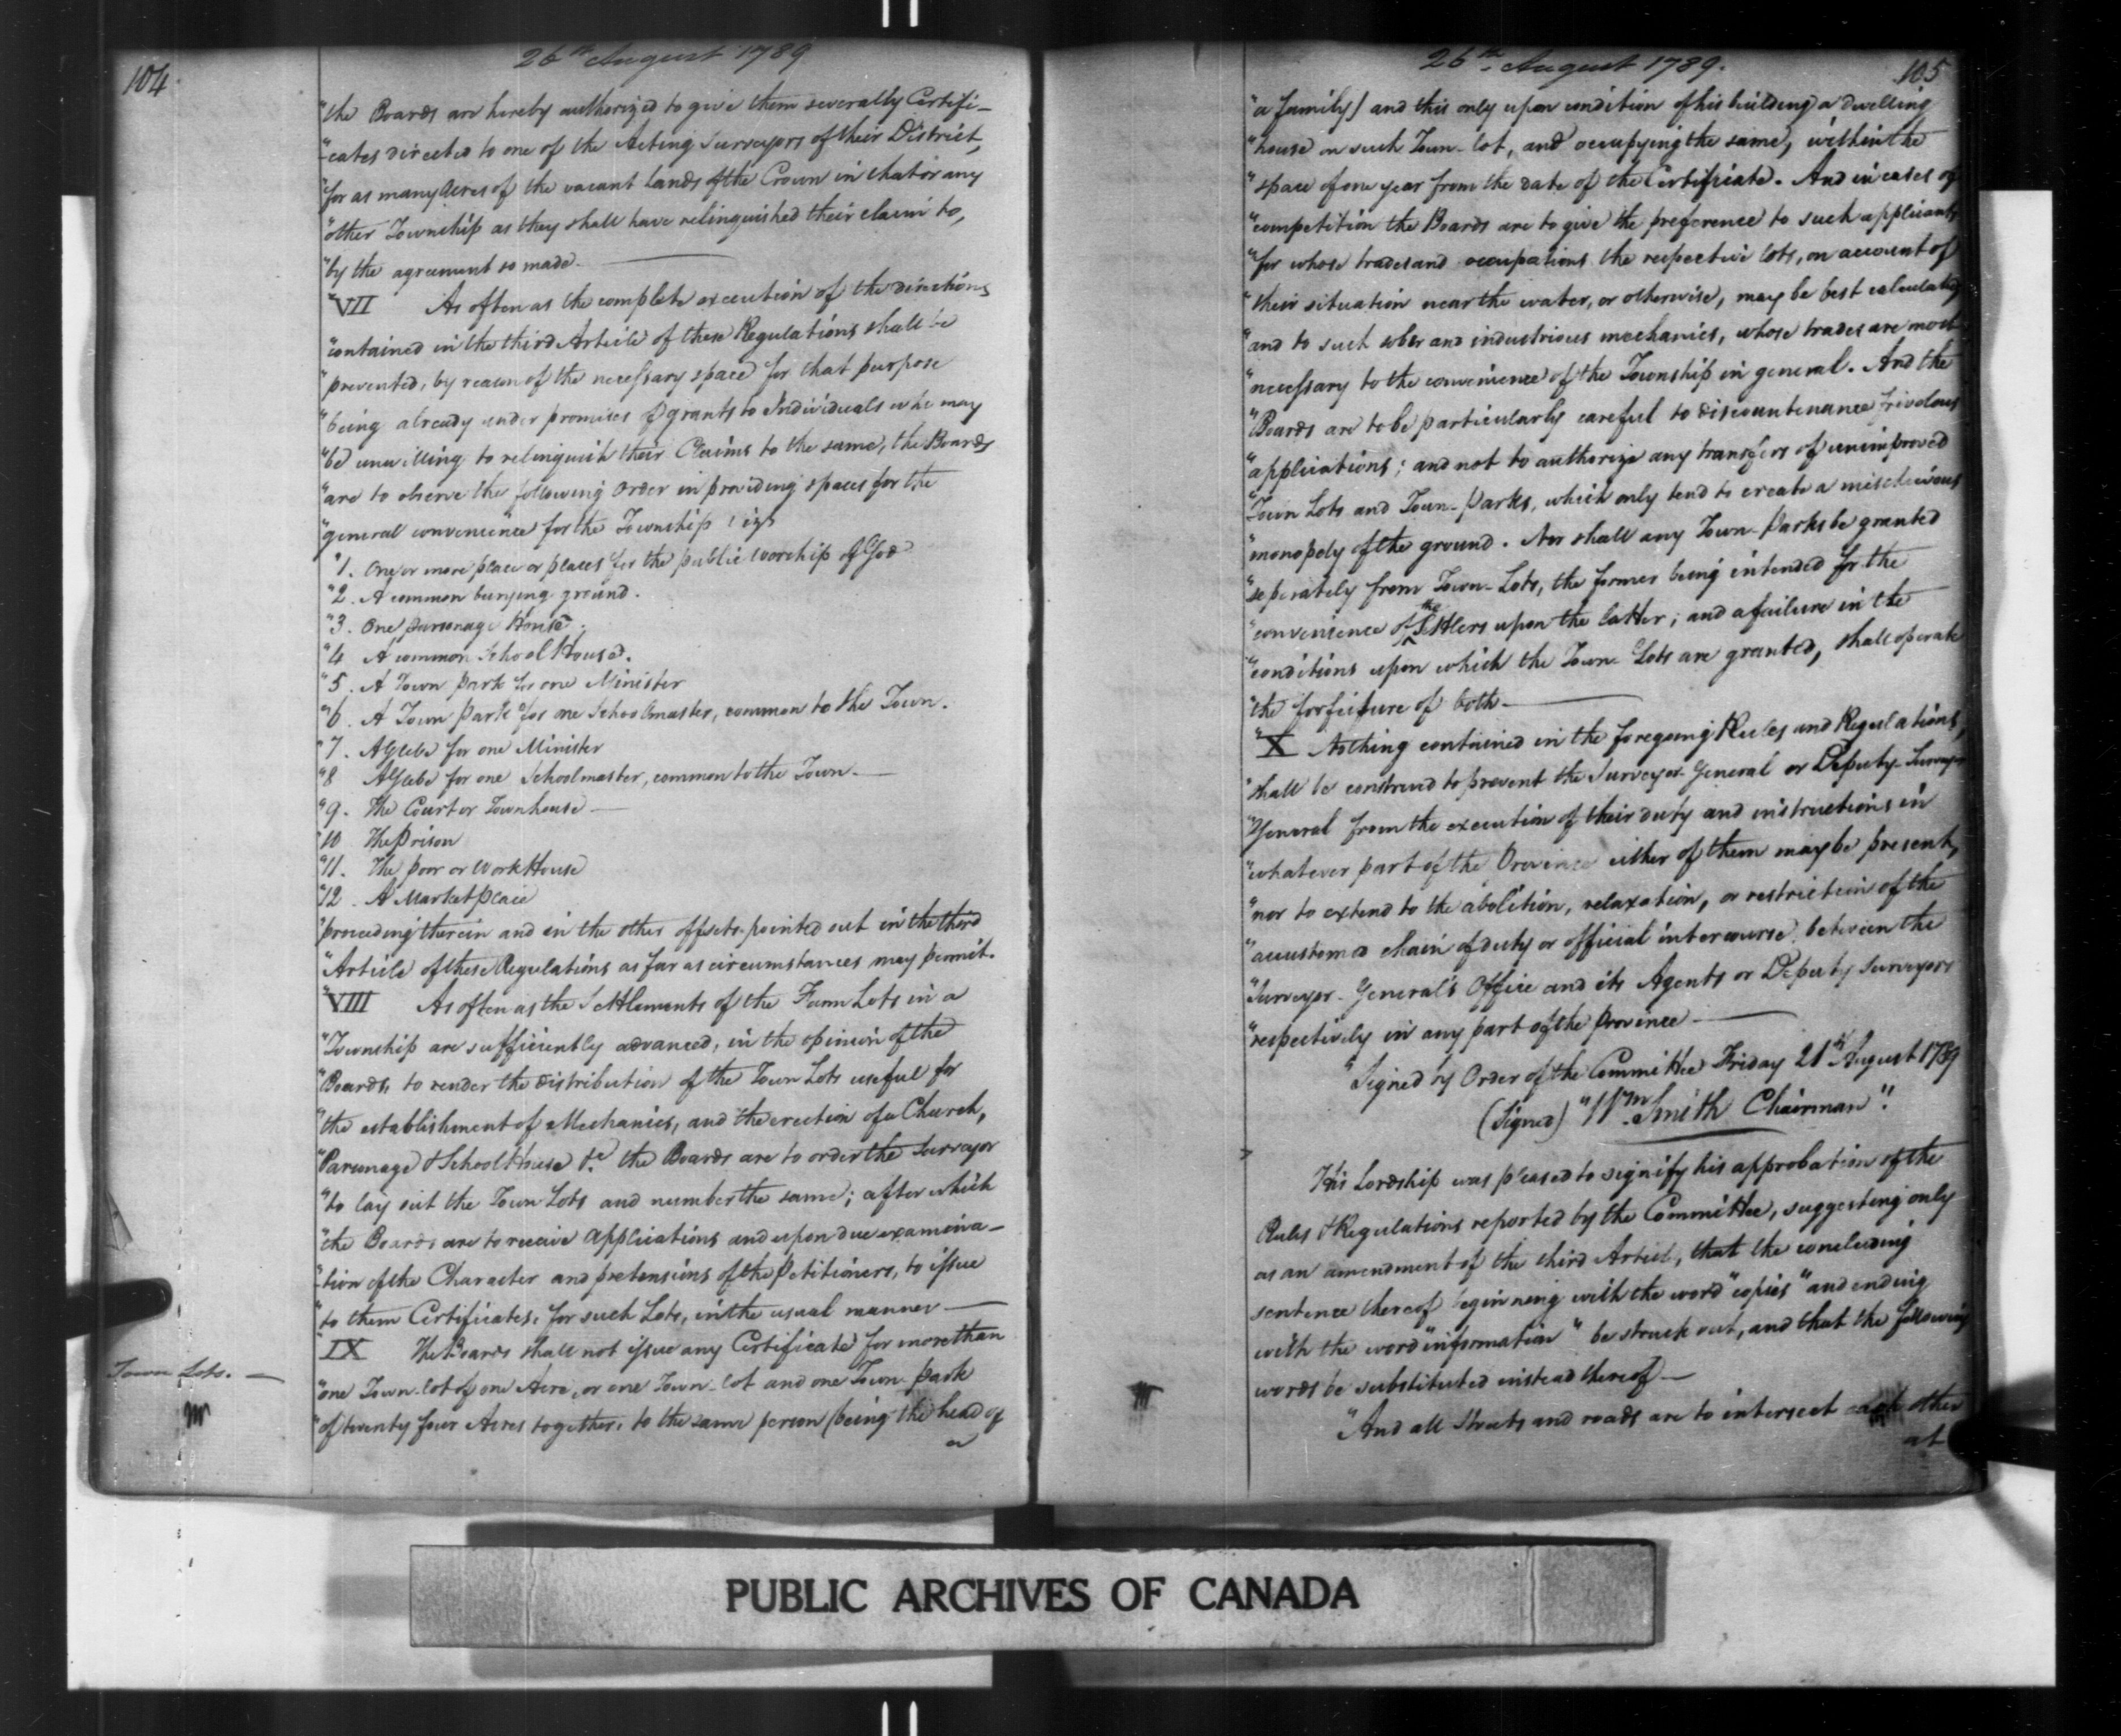 104
26th August 1789
"the Boards are hereby authorized to give them severally Certifi-
"-cates directed to one of the Acting Surveyors of their District,
"for as many Acres of the vacant Lands of the Crown in that or any
"other Township as they shall have relinquished their claim to,
"by the agreement so made.
"VII As often as the complete execution of the directions
"contained in the third Article of these Regulations shall be
"prevented, by reason of the necessary space for that purpose
"being already under promises of grants to Individuals who may
"be unwilling to relinquish their Claims to the same, the Boards
"are to observe the following order in providing spaces for the
"general convenience for the Township vizt
"1. One or more place or places for the public Worship of God
"2. A common burying ground.
"3. One parsonage House.
"4 A common School House.
"5. A Town Park for one Minister
"6. A Town Park for one Schoolmaster, common to the Town.
"7. A Glebe for one Minister
"8 A Glebe for one Schoolmaster, common to the Town.—
"9. The Court or Townhouse—
"10 The Prison
"11. The poor or Work House
"12. A Market place
"proceeding therein and in the other offsets pointed out in the third
"Article of these Regulations as far as circumstances may permit.
"VIII As often as the Settlements of the Farm Lots in a
"Township are sufficiently advanced, in the opinion of the
"Boards, to render the distribution of the Town Lots useful for
"the establishment of Mechanics, and the erection of a Church,
"Parsonage & School House &c the Boards are to order the Surveyor
"to lay out the Town Lots and number the same; after which
"the Boards are to receive applications and upon due examina-
"-tion of the Character and pretensions of the Petitioners, to issue
"to them Certificates, for such Lots, in the usual manner—
"IX The Boards shall not issue any Certificate for more than
Town Lots.—
"one Town-lot of one Acre, or one Town-lot and one Town-park
"of twenty four Acres together, to the same person (being the head of
a
26th August 1789.
105
"a family) and this only upon condition of his building a dwelling
"house on such Town-lot, and occupying the same, within the
"space of one year from the date of the Certificate. And in cases of
"competition the Boards are to give the preference to such applicants
"for whose trades and occupations the respective lots, on account of
"their situation near the water, or otherwise, may be best calculated
"and to such sober and industrious mechanics, whose trades are most
"necessary to the convenience of the Township in general. And the
"Boards are to be particularly careful to discountenance frivolous
"applications; and not to authorize any transfers of unimproved
"Town Lots and Town-Parks, which only tend to create a mischievous
"monopoly of the ground. Nor shall any Town-Parks be granted
"seperately from Town-Lots, the former being intended for the
"convenience of the Settlers upon the latter; and a failure in the
"conditions upon which the Town Lots are granted, shall operate
"the forfeiture of both.—
"X Nothing contained in the foregoing Rules and Regulations,
"shall be construed to prevent the Surveyor General or Deputy-Surveyor
"General from the execution of their duty and instructions in
"whatever part of the Province either of them may be present,
"nor to extend to the abolition, relaxation, or restriction of the
"accustomed chain of duty or official intercourse between the
"Surveyor-General's Office and its Agents or Deputy Surveyors
"respectively in any part of the Province—
"Signed by Order of the Committee Friday 21st August 1789
(Signed) "Wm Smith Chairman".
His Lordship was pleased to signify his approbation of the
Rules & Regulations reported by the Committee, suggesting only
as an amendment of the third Article, that the concluding
sentence thereof beginning with the word "copies" and ending
with the word "information" be struck out, and that the following
words be substituted instead thereof—
"And all Streets and roads are to intersect each other
at
PUBLIC ARCHIVES OF CANADA